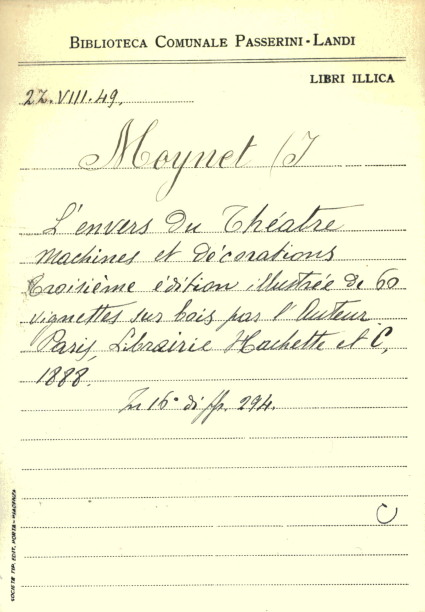 BIBLIOTECA COMUNALE PASSERINI-LANDI
LIBRI ILLICA
27.VIII.49.
Moynet (J
L'envers du Théatre
Machines et décorations
Troisième édition illustrée de 60
vignettes sur bois par l'Auteur
Paris, Librairie Hachette et C,
1888.
In 16° di pp. 294.
C